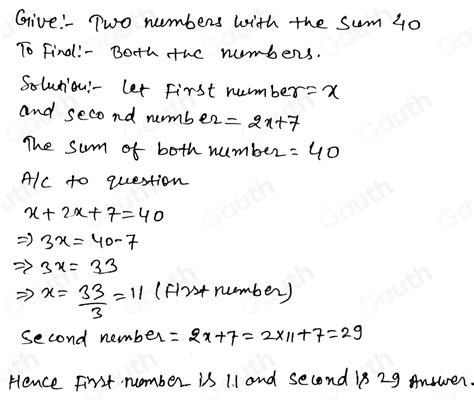 Give:- Two numbers with the sum 40
To Find:- Both the numbers.
Solution:- let First number = x
and second number = 2x+7
The sum of both number = 40
A/c to question
x+2x+7=40
⇒ 3x = 40-7
⇒ 3x = 33
⇒ x = 33/3 = 11 (First number)
Second nember = 2x+7 = 2×11+7=29
Hence First number is 11 and second is 29 Answer.